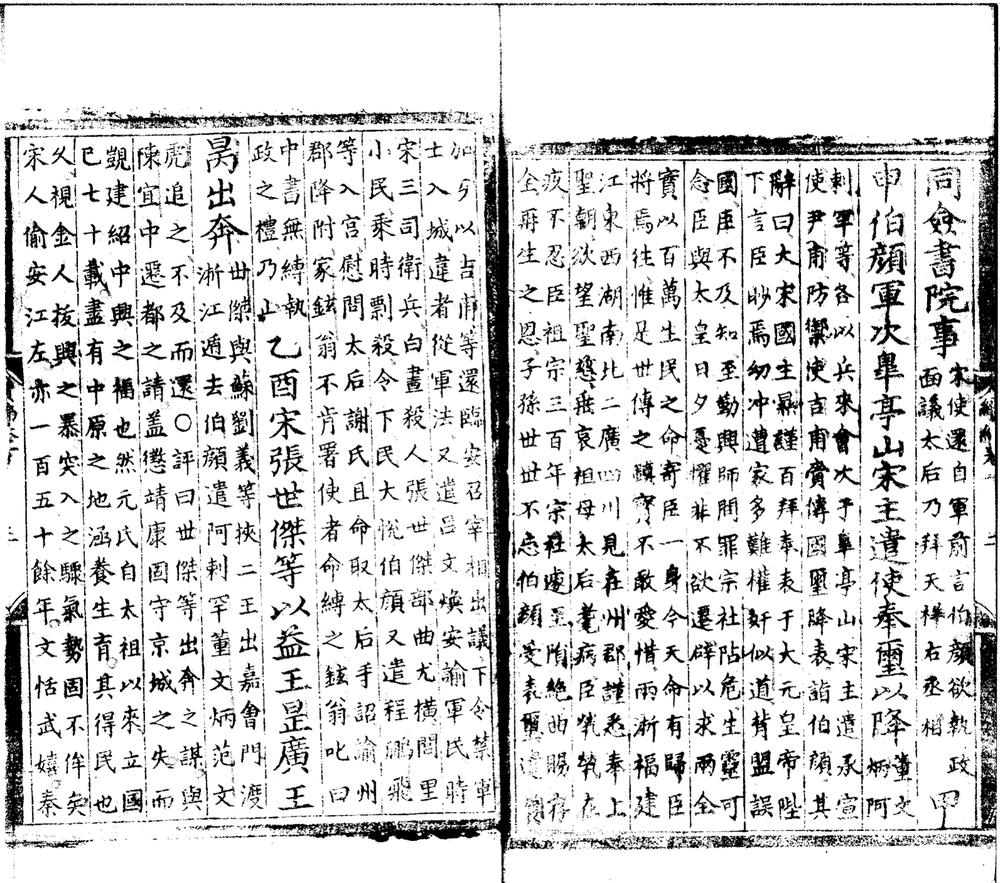 同僉書院事
宋使還自軍前言伯顔欲執政
面議太后乃拜天祥右丞相
甲
申伯顔軍次臯亭山宋主遣使奉璽以降
董文
炳阿
剌罕等各以兵來會次于臯亭山宋主遣承宣
使尹甫防禦使吉甫賫傳國璽降表詣伯顔其
辭曰大宋國主㬎謹百拜奉表于大元皇帝陛
下言臣眇焉幼冲遭家多難權奸似道背盟誤
國臣不及知至勤興師問罪宗社阽危生靈可
念臣與太皇日夕憂懼非不欲遷辟以求兩全
實以百萬生民之命寄臣一身令天命有歸臣
將焉往惟是世傳之鎮寶不敢愛惜兩淅福建
江東西湖南北二廣四川見在州郡謹悉奉上
聖朝欲望聖慈垂哀祖母太后耄病臣煢煢在
疚不忍臣祖宗三百年宗社遽至隕絶曲賜存
全再生之恩子孫世世不忘伯顔受表璽遣囊
加歹以吉甫等還臨安召宰相出議下令禁軍
士入城違者從軍法又遣呂文煥安諭軍民時
宋三司衛兵白晝殺人張世傑部曲尤橫閭里
小民乘時剽殺令下民大悅伯顔又遣程鵬飛
等入宫慰問太后謝氏且命取太后手詔諭州
郡降附家鉉翁不肯署使者命縛之鉉翁叱曰
中書無縛執
政之禮乃止
乙酉宋張世傑等以益王昰廣王
昺出奔
世傑與蘇劉義等挾二王出嘉會門渡
浙江遁去伯顔遣阿剌罕董文炳范文
虎追之不及而還○評曰世傑等出奔之謀與
陳宜中遷都之請盖懲靖康固守京城之失而
覬建紹中興之福也然元氏自太祖以來立國
已七十載盡有中原之地涵養生育其得民也
久視金人拔興之暴突入之驟氣勢固不侔矣
宋人偷安江左亦一百五十餘年文恬武嬉秦